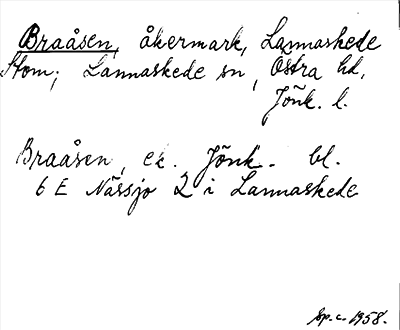 Braåsen, åkermark, Lannaskede
Stom; Lannaskede sn, Östra hd,
Jönk. l.
Braåsen, ek. Jönk. bl.
6 E Nässjö 2 i Lannaskede
Sp.c. 1958.